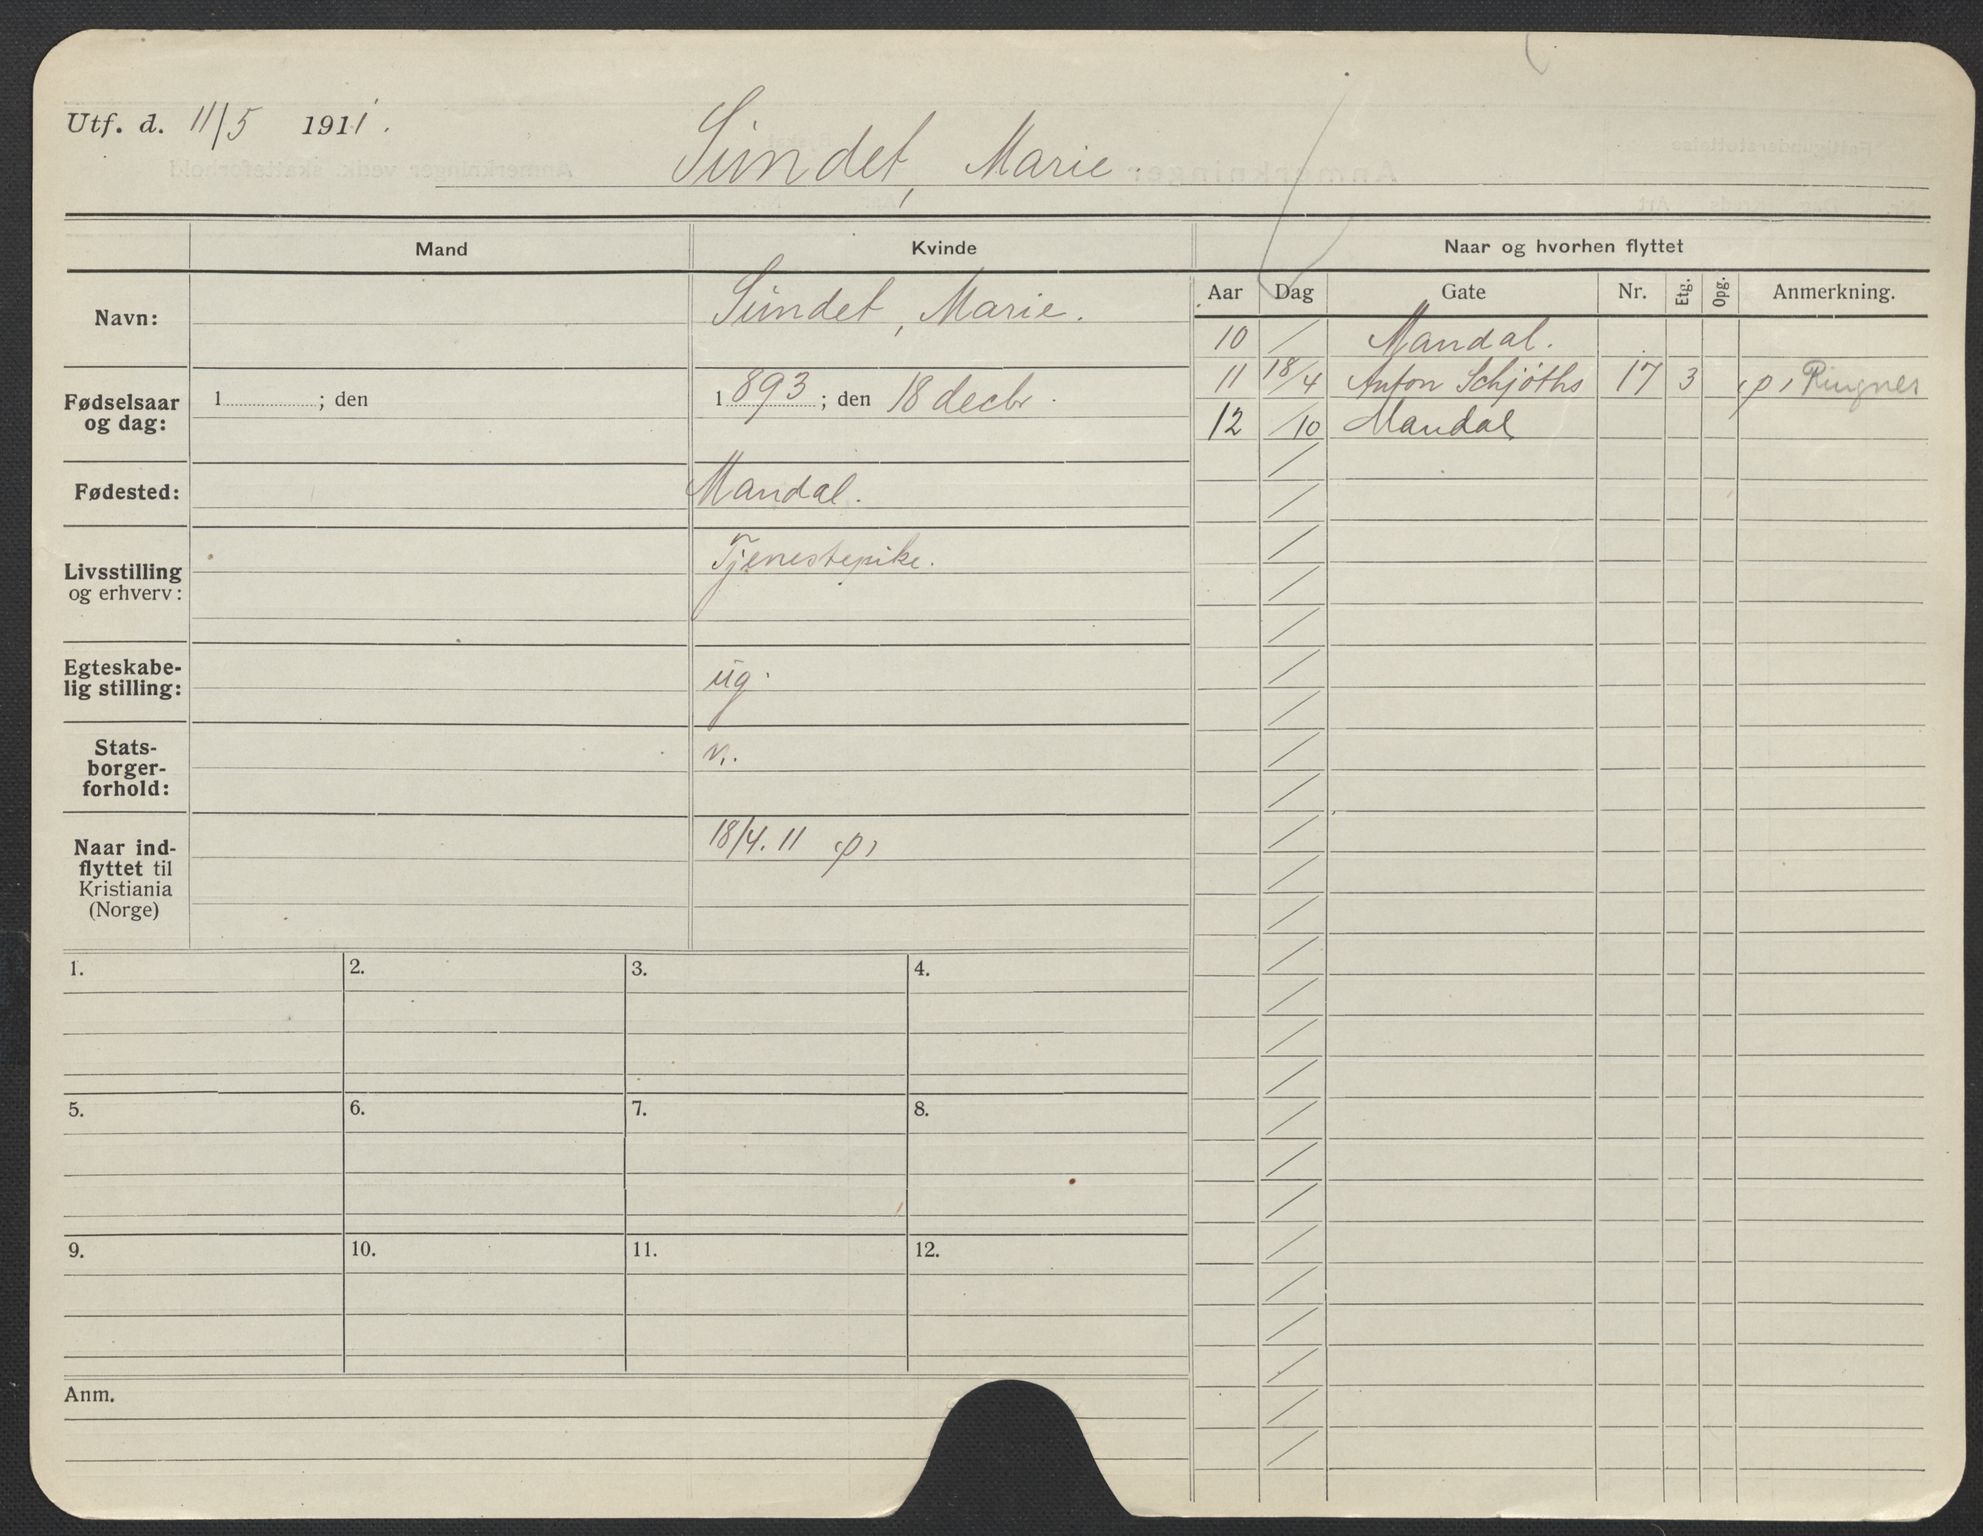 Utf. d. 11/5 1911.
Sundet, Marie.
Mand
Kvinde
Naar og hvorhen flyttet
Aar Dag Gate Nr. Etg. Opg. Anmerkning.
Navn: Sundet, Marie.
Fødselsaar og dag: 1 ; den 1893 ; den 18 decbr.
Fødested: Mandal.
Livsstilling og erhverv: Tjenestepike.
Egteskabelig stilling: ug.
Statsborgerforhold: n.
Naar indflyttet til Kristiania (Norge) 18/4. 11 p)
10 / Mandal.
11 18/4 Anton Schjøths 17 3 p, Ringnes
12 /10 Mandal
1. 2. 3. 4.
5. 6. 7. 8.
9. 10. 11. 12.
Anm.